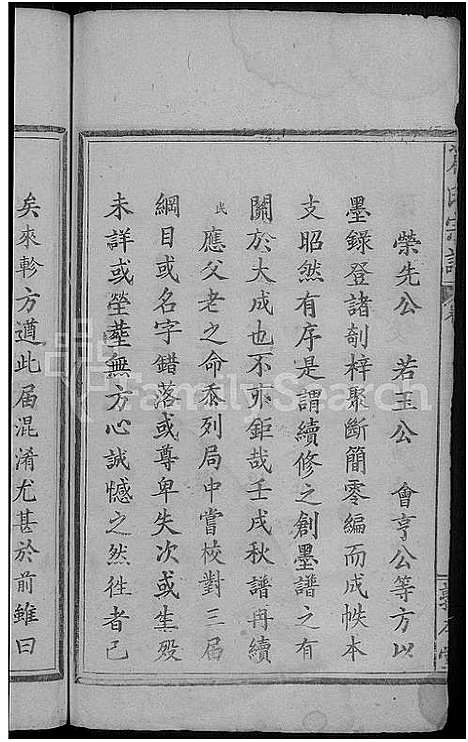 榮先公　若玉公　會亨公等方以
墨錄登諸剞梓聚斷簡零編而成帙本
支昭然有序是謂續修之創墨譜之有
關於大成也不亦鉅哉壬戌秋譜再續
民應父老之命忝列局中嘗校對三届
綱目或名字錯落或尊卑失次或生殁
未詳或塋墓無方心誠憾之然徃者已
矣來軫方遒此届混淆尤甚於前雖曰
氏宗譜
FamilySearch